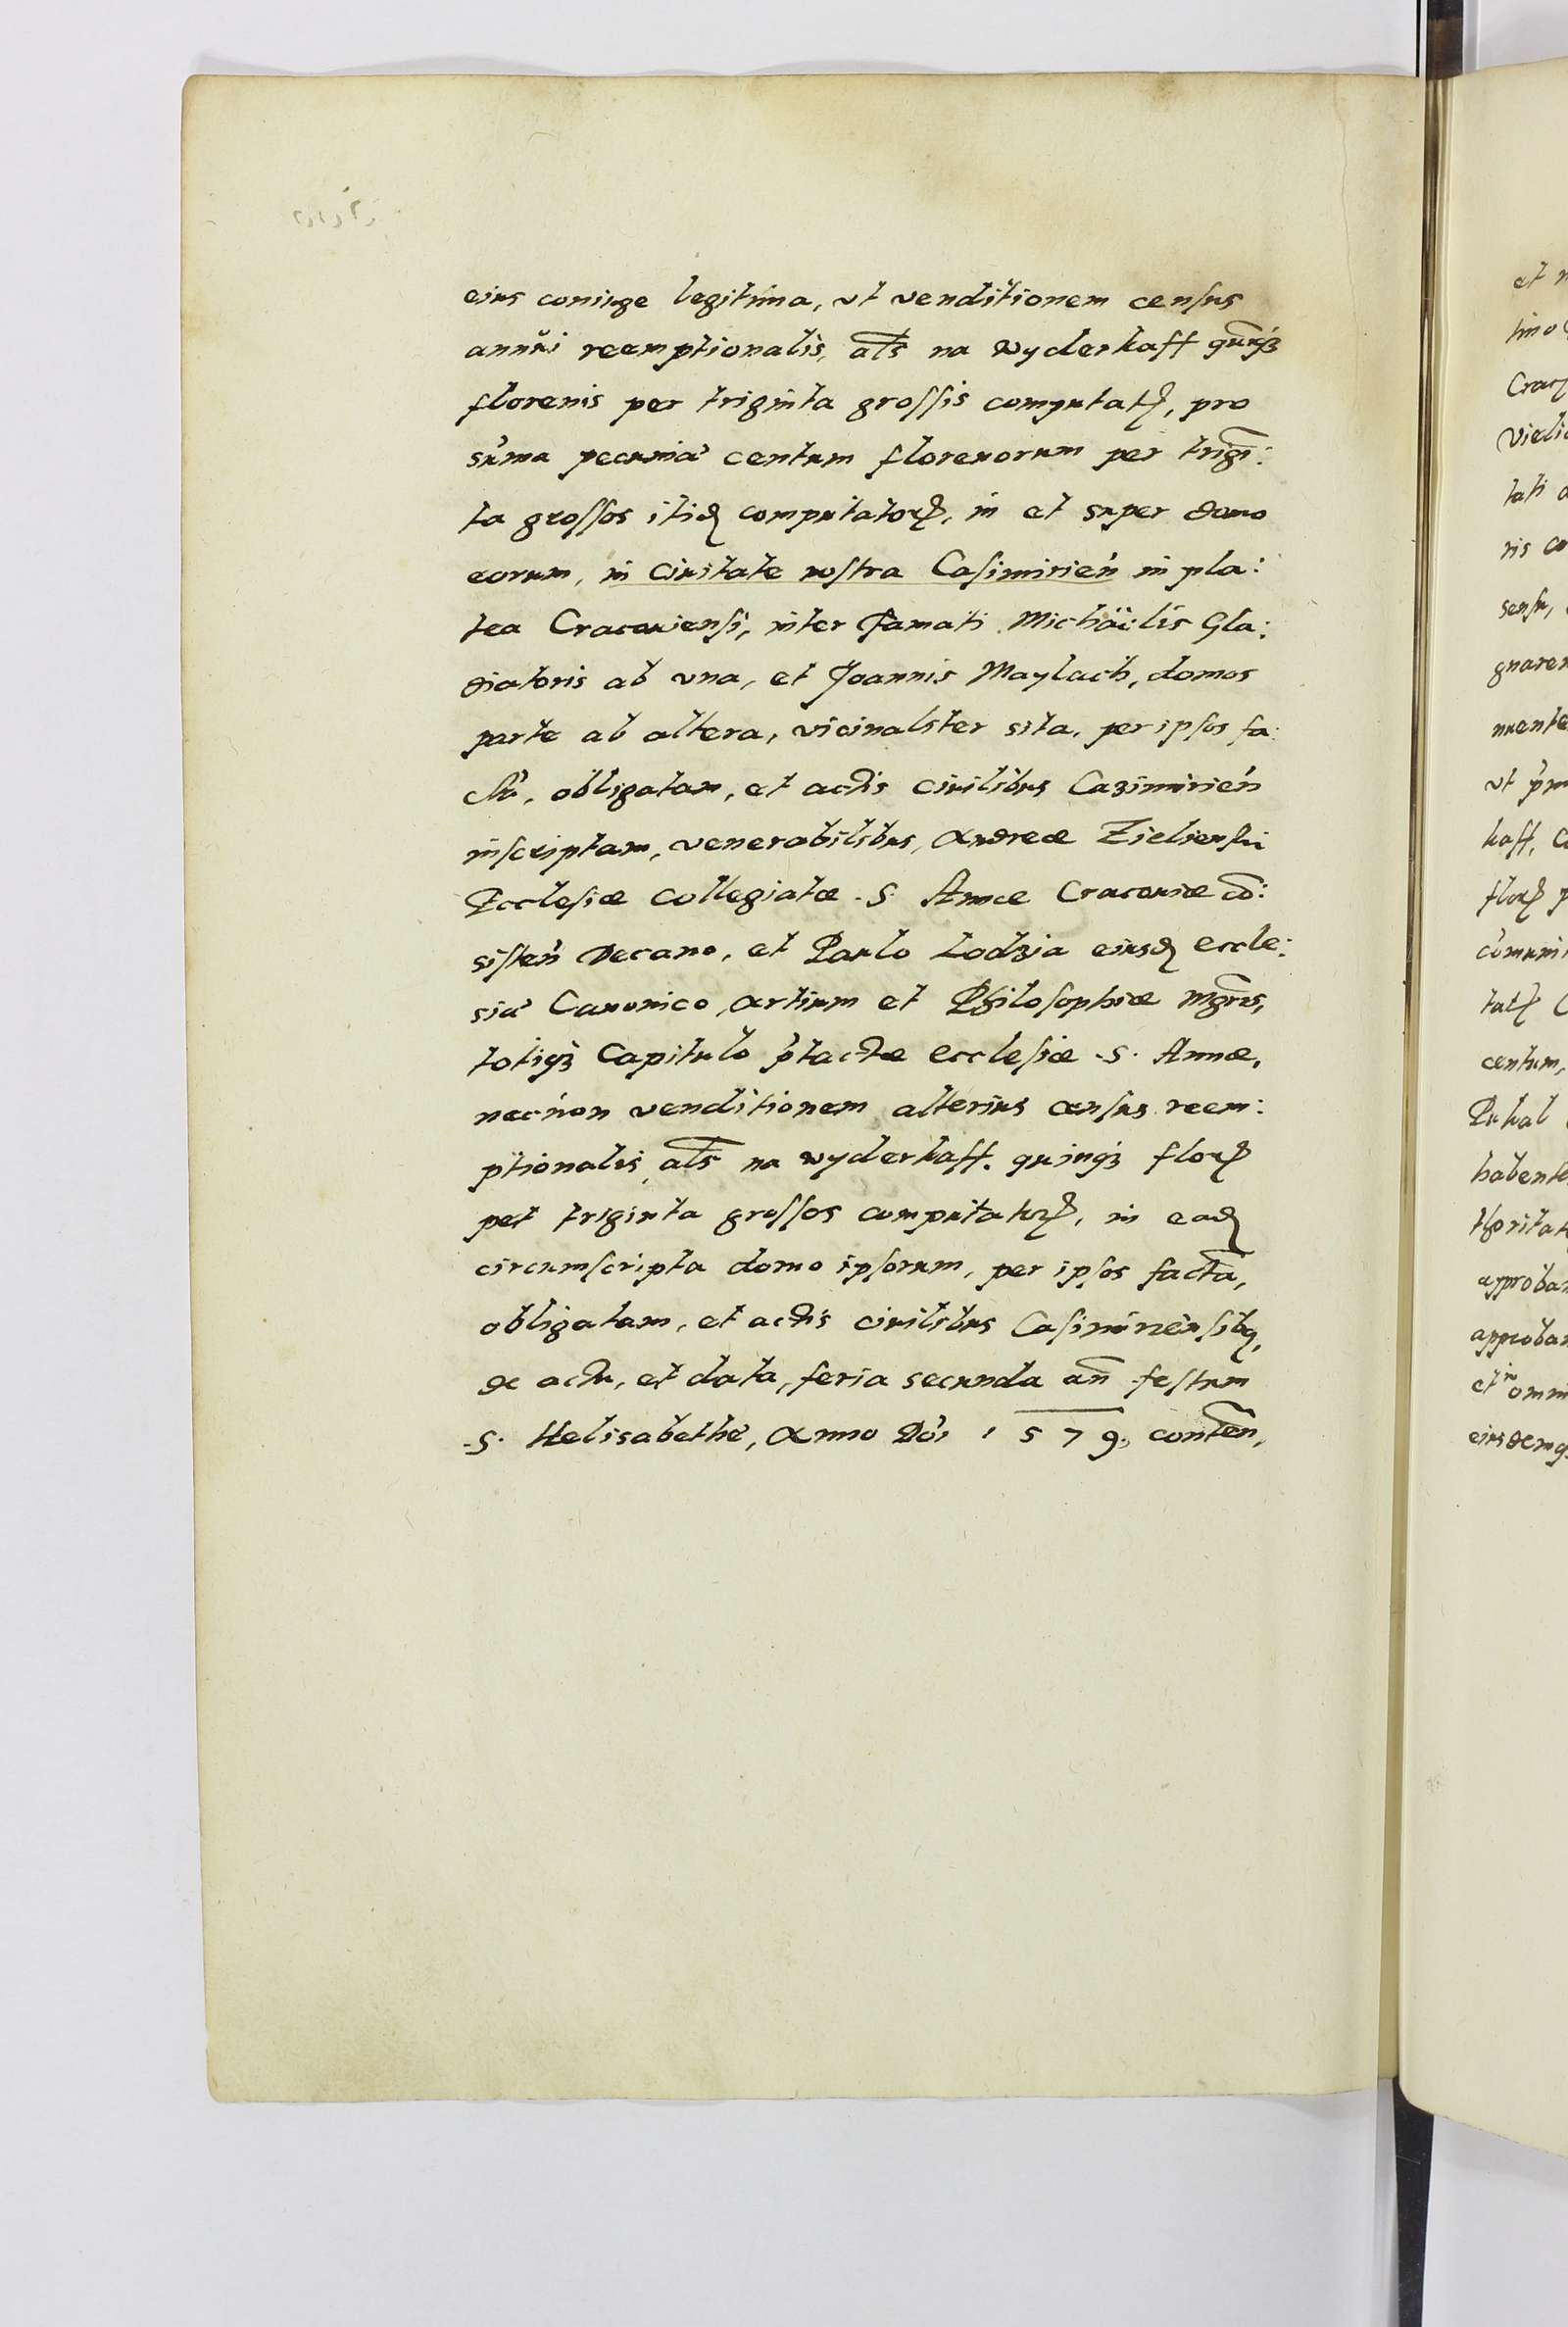 eius coniuge legitima, vt venditionem census
annui reemptionalis, als na wyderkaff quinqȝ
florenis per triginta grossis computatꝶ, pro
sum̄a pecuniæ centum florenorum per trigī:
ta grossos itidē computatorꝶ, in et super domo
eorum, in ciuitate nostra Casimirień in pla:
tea Cracouiensi, inter Famati Michaëlis Gla:
diatoris ab vna, et Joannis Maylach, domos
parte ab altera, vicinaliter sita, per ipsos fa:
ctā, obligatam, et actis ciuilibus Cazimirień
inscriptam, venerabilibus, Andreæ Zielienski
Ecclesiæ Collegiatæ S. Annæ Cracouiæ cō:
sisteń Decano, et Paulo Lodzia eiusdē eccle:
siæ Canonico, artium et Philosophiæ Mgr̄is,
totiqȝ Capitulo p̄tactæ ecclesiæ S. Annæ,
necnon venditionem alterius census reem:
ptionalis, als na wyderkaff. quinqȝ florꝶ
per triginta grossos computatorꝶ, in eadē
circumscripta domo ipsorum, per ipsos factā,
obligatam, et actis ciuilibus Casimiriensibꝰ,
de actu, et data, feria secunda an̄ festum
S. Helisabethæ, Anno Dn̄i 1579, conteń,
et
Crac
tati
sensu,
ut
centum,
Pukal
approban
approban
et in omni
eiusdemq